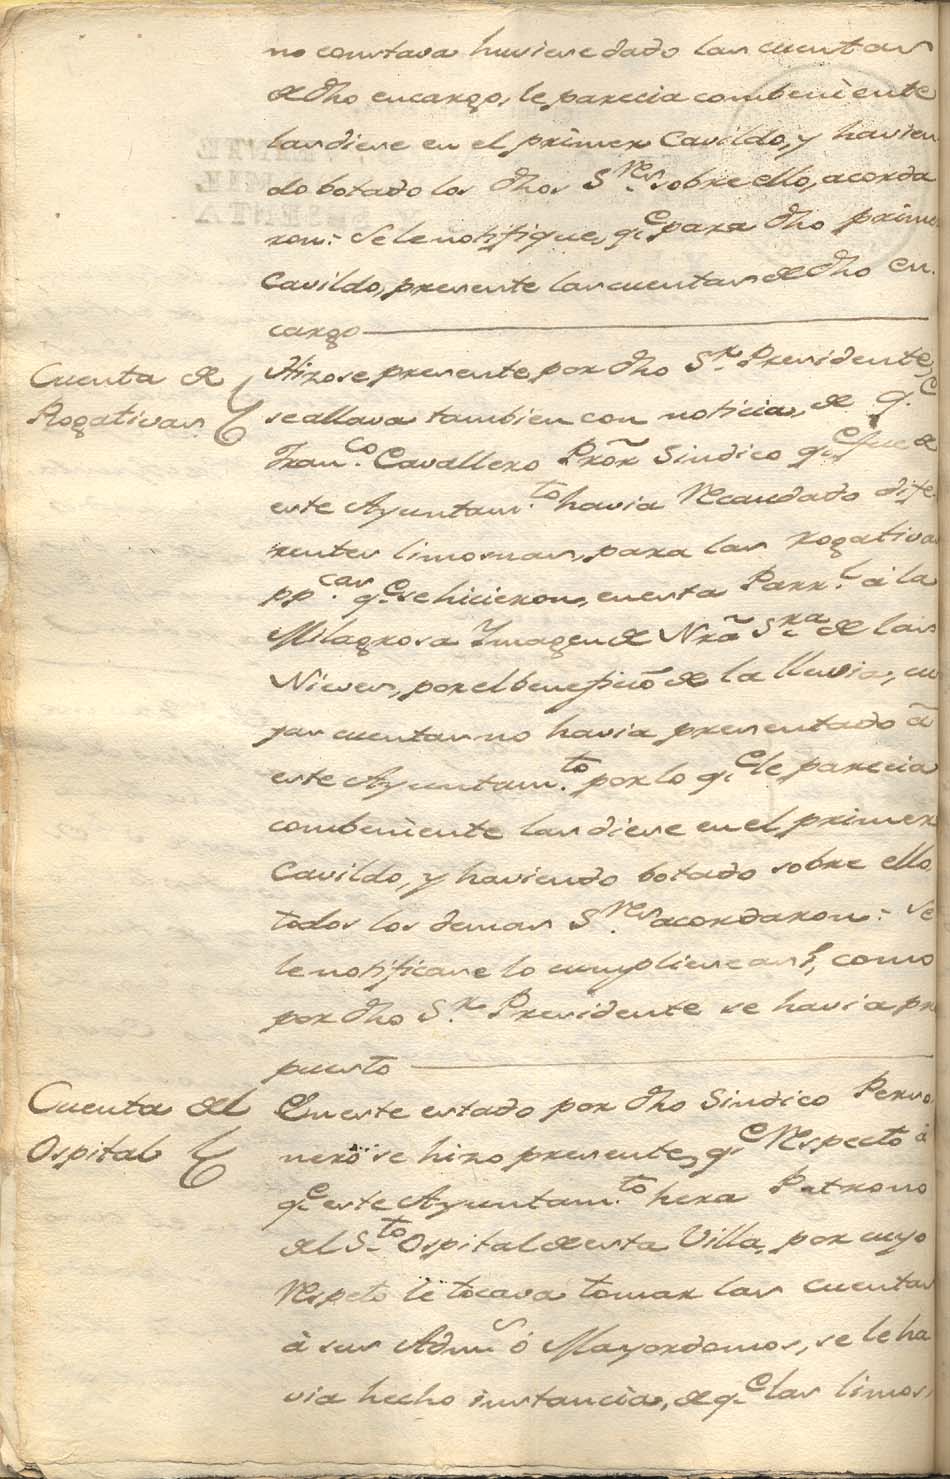 no constava huviese dado las cuentas
de dho encargo, le parecia combeniente
las diese en el primer Cavildo, y havien
do botado los dhos S.res sobre ello, acorda
ron: Se le notifique, q.e para dho primer
Cavildo, presente las cuentas de dho en
cargo
Cuenta de
Rogativas
Hizose presente por dho S.r Presidente,
se allava tambien con noticia, de q.e
Fran.co Cavallero Prõr Sindico q.e fue de
este Ayuntam.to havia Recaudado dife
rentes limosnas, para las rogativas
pp.cas q.e se hicieron, en esta Parr.l à la
Milagrosa Imagen de Nrã S.ra de las
Nieves, por el beneficiõ de la lluvia, cu
yas cuentas no havia presentado ã
este Ayuntam.to por lo q.e le parecia
combeniente las diese en el primer
Cavildo, y haviendo botado sobre ello,
todos los demas S.res acordaron: Se
le notificase lo cumpliese asi, como
por dho S.r Presidente se havia pro
puesto
Cuenta del
Ospital
En este estado por dho Sindico Perso
nero se hizo presente, q.e Respecto à
q.e este Ayuntam.to hera Patrono
del S.to Ospital de esta Villa, por cuyo
Respeto le tocava tomar las cuentas
à sus Adm.s ó Mayordomos, se le ha
via hecho instancia, de q.e las limos